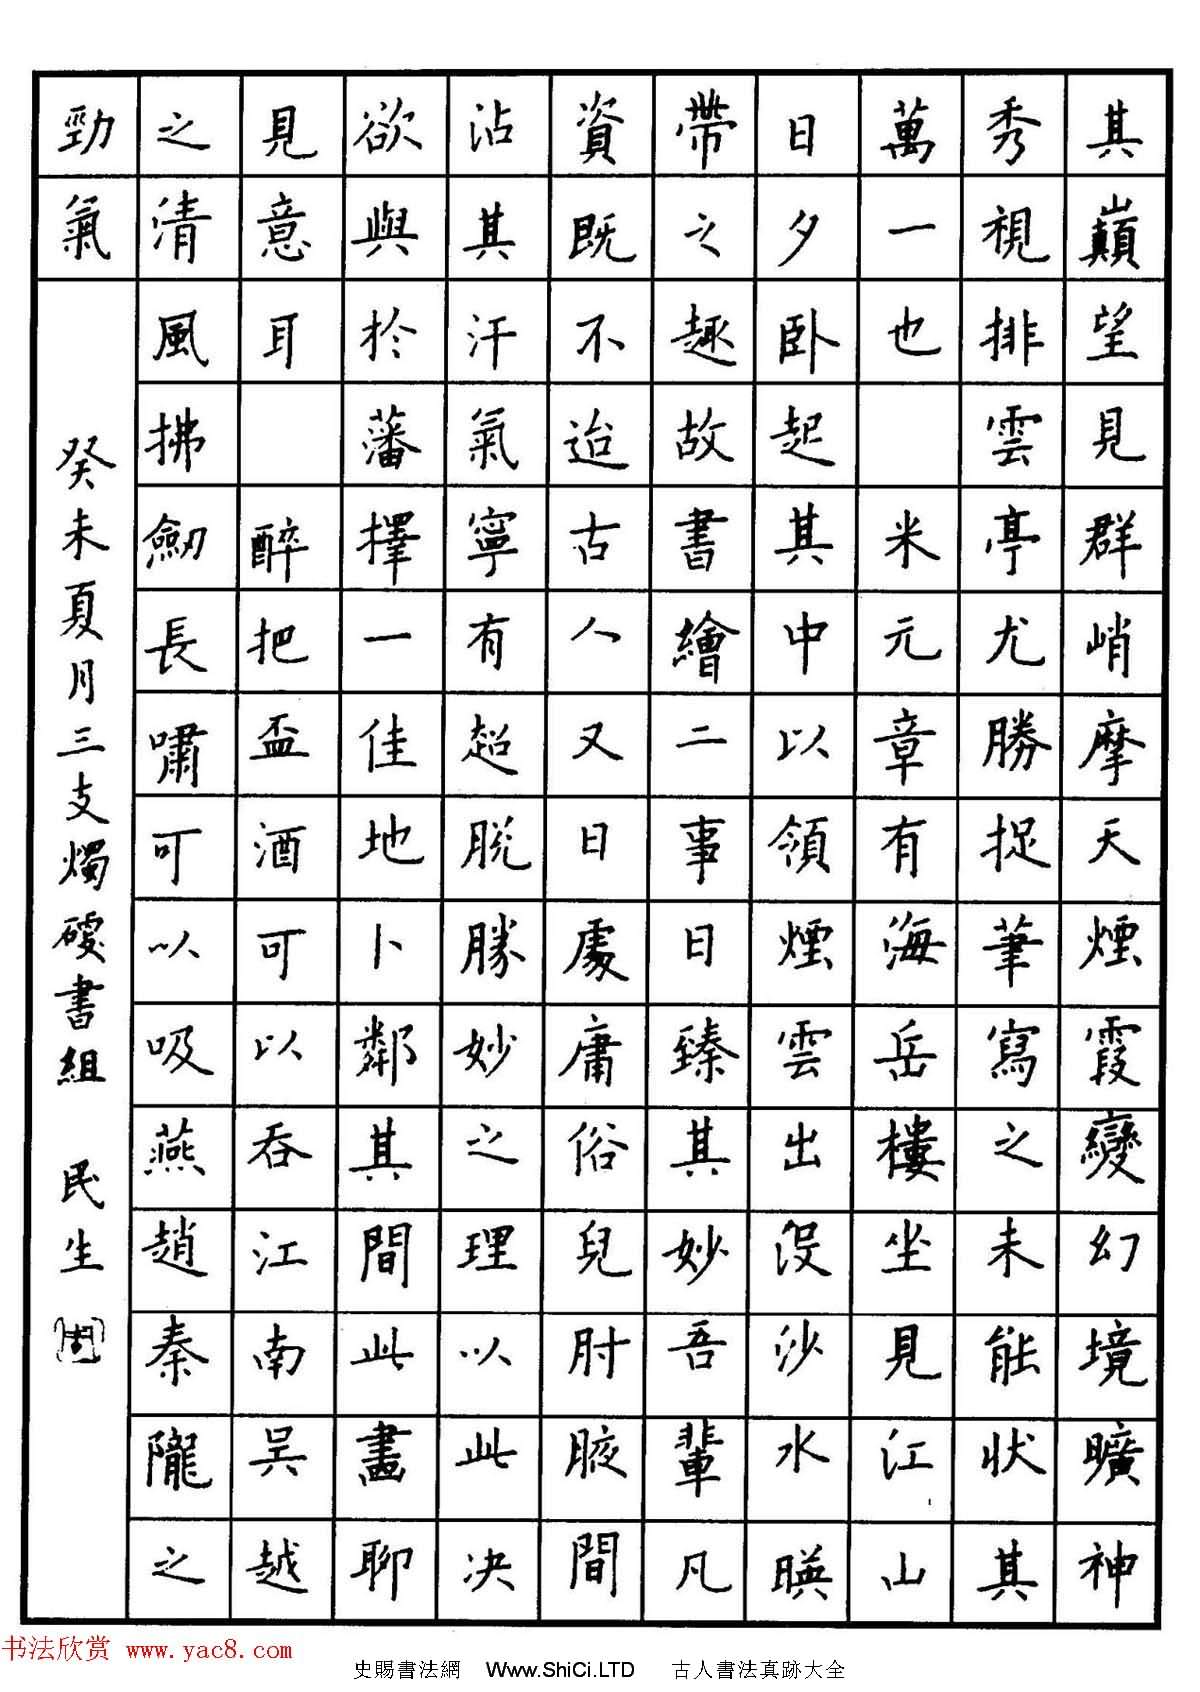 其巔望見群峭摩天煙霞變幻境曠神
秀視排雲亭尤勝捉筆寫之未能狀其
萬一也 米元章有海岳樓坐見江山
日夕臥起其中以領煙雲出沒沙水暎
帶之趣故書繪二事日臻其妙吾輩凡
資既不迨古人又日處庸俗兒肘腋間
沾其汗氣寧有超脱勝妙之理以此决
欲與於藩擇一佳地卜鄰其間此畫聊
見意耳 醉把盃酒可以吞江南吳越
之清風拂劒長嘯可以吸燕趙秦隴之
勁氣
癸未夏月三支燭硬書組 民生
书法欣赏 www.yac8.com
史賜書法網 Www.ShiCi.LTD 古人書法真跡大全